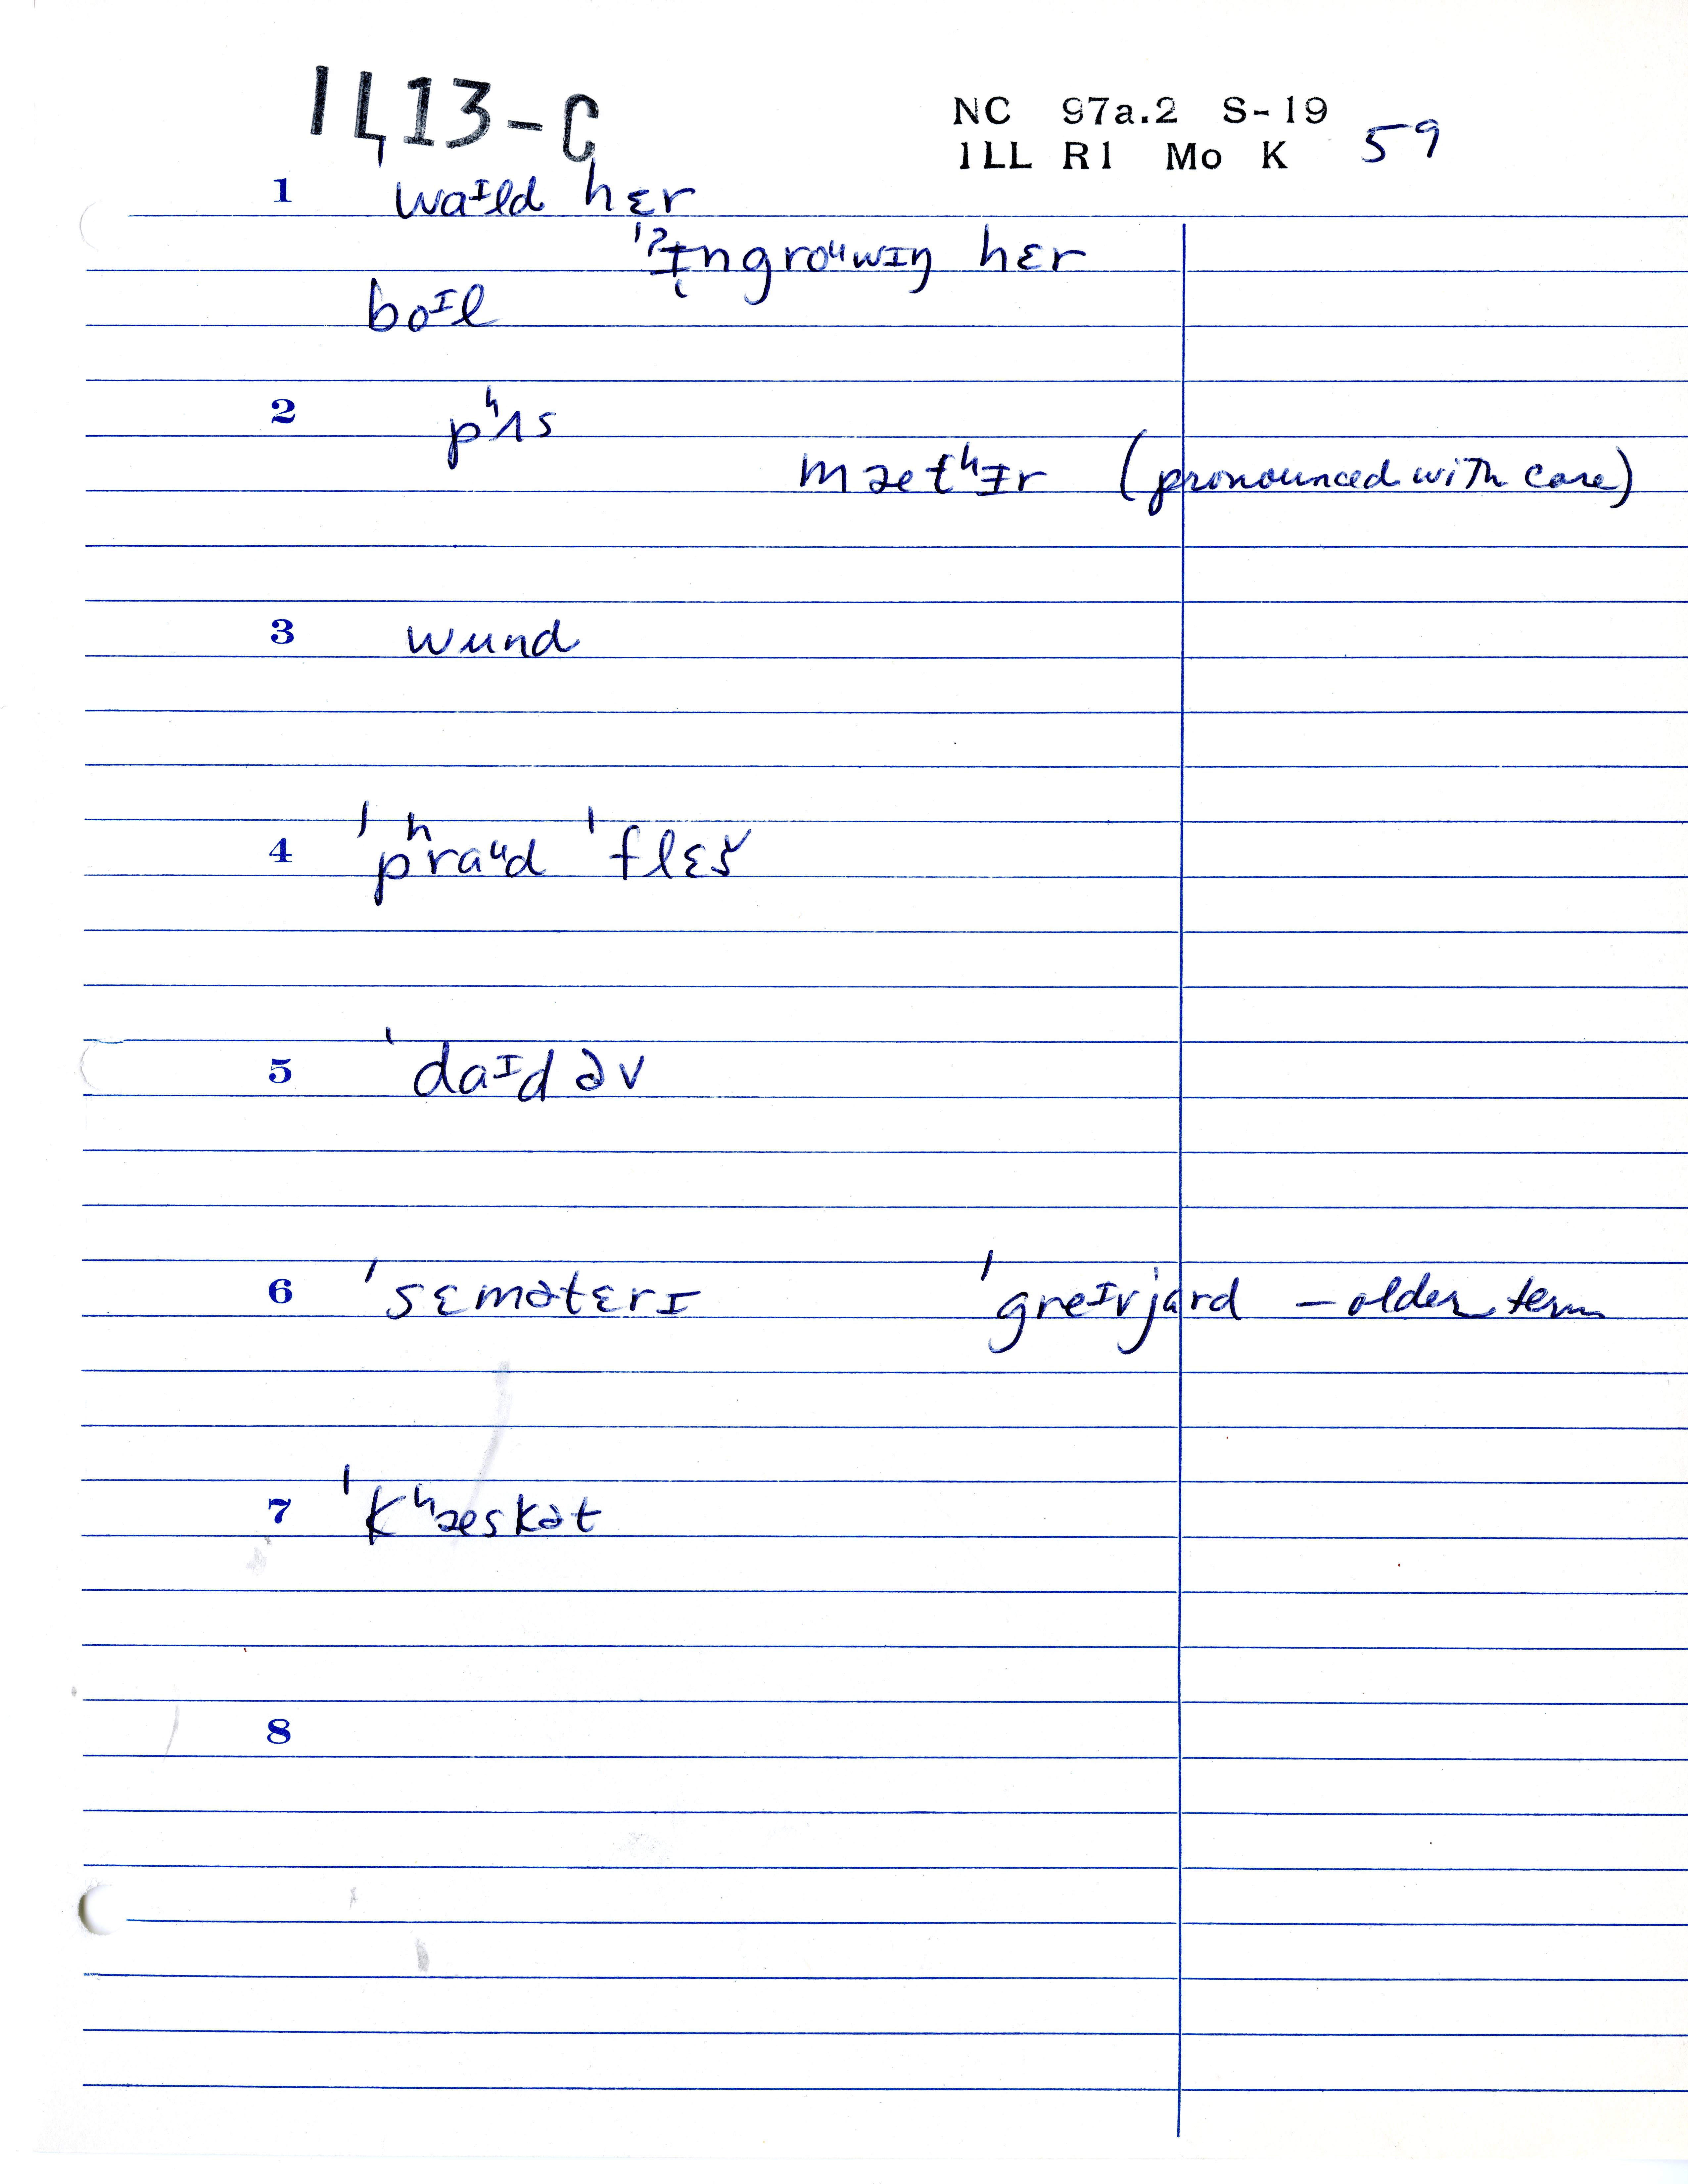 IL13-C
NC 97a.2 S-19
ILL R1 Mo K 59
1 ˈwaᶦld hɛr
ˈˀɪngroᵘwɪŋ hɛr
boᶦl
2 pʰʌs
mætʰɪr (pronounced with care)
3 wund
4 ˈpʰraᵘd ˈflɛš
5 ˈdaᶦd əv
6 ˈsɛmətɛrɪ ˈgreᶦvjard – older term
7 ˈkʰæskət
8